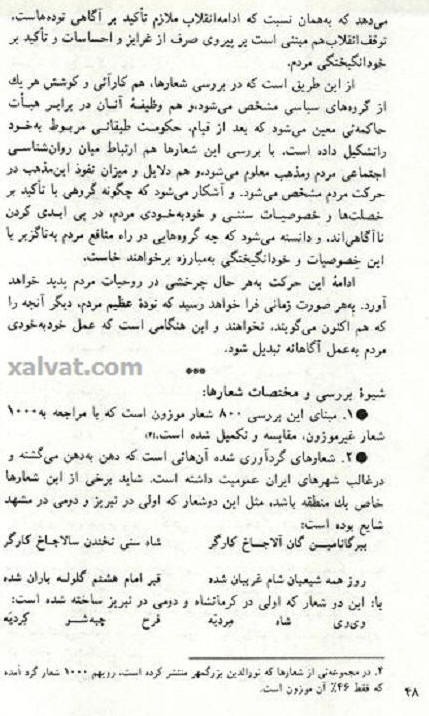 می‌دهد که به‌همان نسبت که ادامه‌انقلاب ملازم تأکید بر آگاهی توده‌هاست،
توقف‌انقلاب‌هم مبتنی است بر پیروی صرف از غرایز و احساسات و تأکید بر
خودانگیختگی مردم.
از این طریق است که در بررسی شعارها، هم کارآئی و کوشش هر یك
از گروه‌های سیاسی مشخص می‌شود،و هم وظیفهٔ آنان در برابر هیأت
حاکمه‌ئی معین می‌شود که بعد از قیام، حکومت طبقاتی مربوط به‌خود
راتشکیل داده است. با بررسی این شعارها هم ارتباط میان روان‌شناسی
اجتماعی مردم ومذهب معلوم می‌شود،و هم دلایل و میزان نفوذ این‌مذهب در
حرکت مردم مشخص می‌شود. و آشکار می‌شود که چگونه گروهی با تأکید بر
خصلت‌ها و خصوصیات سنتی و خودبه‌خودی مردم، در پی ابدی کردن
ناآگاهی‌اند، و دانسته می‌شود که چه گروه‌هایی در راه منافع مردم به‌ناگزیر با
این خصوصیات و خودانگیختگی به‌مبارزه برخواهند خاست.
ادامهٔ این حرکت به‌هر حال چرخشی در روحیات مردم پدید خواهد
آورد. به‌هر صورت زمانی فرا خواهد رسید که تودهٔ عظیم مردم، دیگر آنچه را
که هم اکنون می‌گویند، نخواهند و این هنگامی است که عمل خودبه‌خودی
مردم به‌عمل آگاهانه تبدیل شود.
xalvat.com
***
شیوهٔ بررسی و مختصات شعارها:
●۱. مبنای این بررسی ۸۰۰ شعار موزون است که با مراجعه به‌۱۰۰۰
شعار غیرموزون، مقایسه و تکمیل شده است.(۲)
●۲. شعارهای گردآوری شده آن‌هائی است که دهن به‌دهن می‌گشته و
درغالب شهرهای ایران عمومیت داشته است. شاید برخی از این شعارها
خاص یك منطقه باشد، مثل این دوشعار که اولی در تبریز و دومی در مشهد
شایع بوده است:
بیرگانامیسن گان آلاجاخ کارگر شاه سنی تخندن سالاجاخ کارگر
روز همه شیعیان شام غریبان شده قبر امام هشتم گلوله باران شده
یا: این دو شعار که اولی در کرمانشاه و دومی در تبریز ساخته شده است:
وی‌وی شاه مِردیَه فرح چیه‌شر کِردیَه
۲. در مجموعه‌ئی از شعارها که نورالدین بزرگمهر منتشر کرده است، رویهم ۱۰۰۰ شعار گرد آمده
که فقط ۴۶٪ آن موزون است.
۴۸